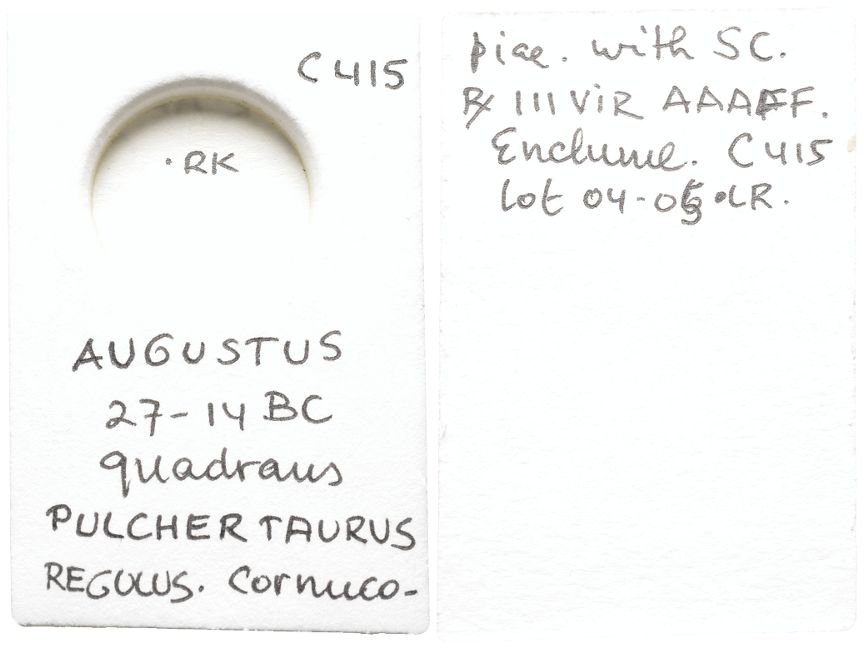 C415
·RK
AUGUSTUS
27-14 BC
quadraus
PULCHER TAURUS
REGULUS. Cornuco-
piae. with SC.
R/ III VIR AAAFF.
Enclume. C415
lot 04-05·LR.